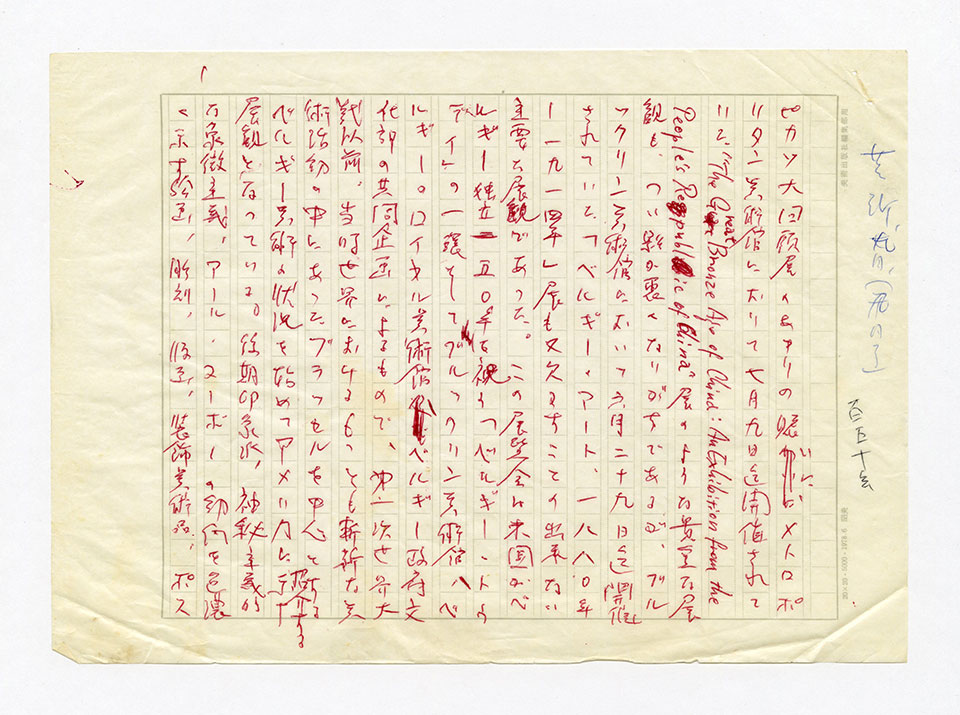 ピカソ大回顧展のあまりの賑いに メトロポ
リタン美術館において七月九日迄開催されて
いる "The Great Bronze Age of China: An Exhibition from the
People's Republic of China" 展のような貴重な展
観も、つい影が悪くなりがちであるが、ブル
ックリン美術館において六月二十九日迄開催
されている「ベルギー・アート、一八八〇年
ー一九一四年」展も又欠かすことの出来ない
主要な展観であった。この展覧会は米国がベ
ルギー独立一五〇年を祝う「ベルギー・トゥ
デイ」の一環としてブルックリン美術館、ベ
ルギー・ロイヤル美術館、ベルギー政府文
化部の共同企画によるもので、第一次世界大
戦以前、当時世界におけるもっとも斬新な美
術活動の中にあったブラッセルを中心とする
ベルギー美術の状況を始めてアメリカに紹介する
展観となっている。後期印象派、神秘主義的
な象徴主義、アール・ヌーボーの動向を色濃
く示す絵画、彫刻、版画、装飾美術品、ポス
美術出版社編集部用
20×20・5000・1978.6
百五十年